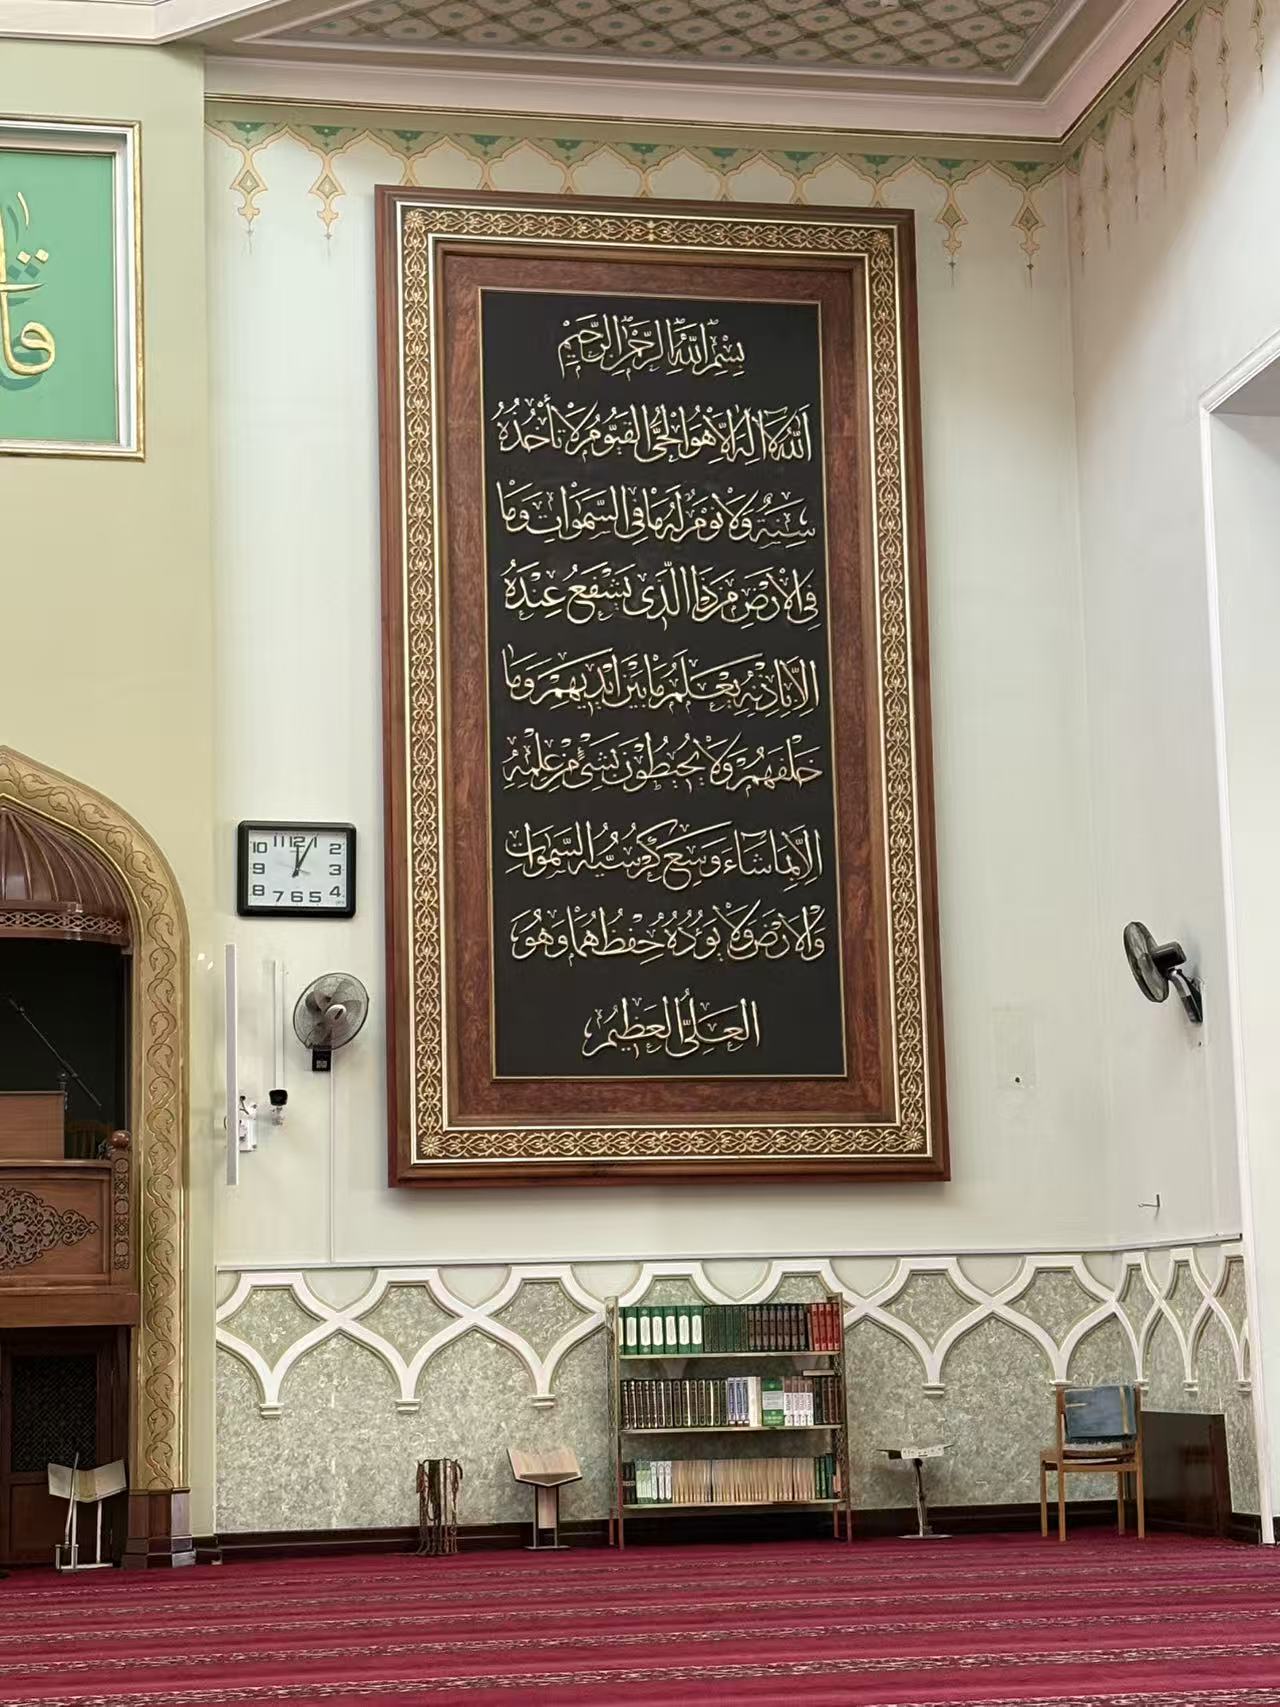 بِسْمِ اللّٰهِ الرَّحْمٰنِ الرَّحِيمِ
اَللّٰهُ لَا اِلٰهَ اِلَّا هُوَ الْحَيُّ الْقَيُّومُ لَا تَأْخُذُهُ
سِنَةٌ وَلَا نَوْمٌ لَهُ مَا فِي السَّمٰوَاتِ وَمَا
فِي الْاَرْضِ مَنْ ذَا الَّذِي يَشْفَعُ عِنْدَهُ
اِلَّا بِاِذْنِهِ يَعْلَمُ مَا بَيْنَ اَيْدِيهِمْ وَمَا
خَلْفَهُمْ وَلَا يُحِيطُونَ بِشَيْءٍ مِنْ عِلْمِهِ
اِلَّا بِمَا شَاءَ وَسِعَ كُرْسِيُّهُ السَّمٰوَاتِ
وَالْاَرْضَ وَلَا يَؤُدُهُ حِفْظُهُمَا وَهُوَ
الْعَلِيُّ الْعَظِيمُ
11 12 1
10 2
9 3
8 4
7 6 5